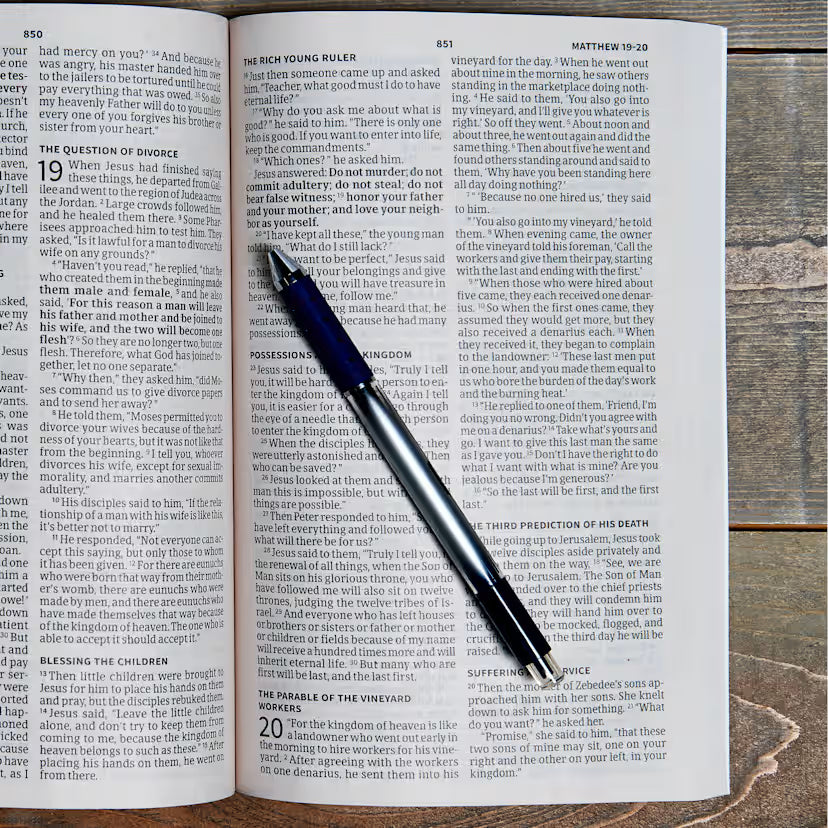 850
your
e one
e tes-
every
oesn't
. If he
urch,
ector
u bind
aven,
l have
y I tell
ut any
ne for
where
in my
G
asked,
ve my
e? As
Jesus
heav-
want-
vants.
s, one
s was
d not
l mas-
ldren,
ay the
down
h me,
en the
ssion,
oan.
nd one
him a
tarted
owe!'
down
atient
30 But
t and
d pay
r ser-
were
orted
l hap-
oned
icked
cause
o have
t, as I
had mercy on you?' 34 And because he
was angry, his master handed him over
to the jailers to be tortured until he could
pay everything that was owed. 35 So also
my heavenly Father will do to you unless
every one of you forgives his brother or
sister from your heart."
THE QUESTION OF DIVORCE
19 When Jesus had finished saying
these things, he departed from Gal-
ilee and went to the region of Judea across
the Jordan. 2 Large crowds followed him,
and he healed them there. 3 Some Phar-
isees approached him to test him. They
asked, "Is it lawful for a man to divorce his
wife on any grounds?"
4 "Haven't you read," he replied, "that he
who created them in the beginning made
them male and female, 5 and he also
said, 'For this reason a man will leave
his father and mother and be joined to
his wife, and the two will become one
flesh'? 6 So they are no longer two, but one
flesh. Therefore, what God has joined to-
gether, let no one separate."
7 "Why then," they asked him, "did Mo-
ses command us to give divorce papers
and to send her away?"
8 He told them, "Moses permitted you to
divorce your wives because of the hard-
ness of your hearts, but it was not like that
from the beginning. 9 I tell you, whoever
divorces his wife, except for sexual im-
morality, and marries another commits
adultery."
10 His disciples said to him, "If the rela-
tionship of a man with his wife is like this,
it's better not to marry."
11 He responded, "Not everyone can ac-
cept this saying, but only those to whom
it has been given. 12 For there are eunuchs
who were born that way from their moth-
er's womb, there are eunuchs who were
made by men, and there are eunuchs who
have made themselves that way because
of the kingdom of heaven. The one who is
able to accept it should accept it."
BLESSING THE CHILDREN
13 Then little children were brought to
Jesus for him to place his hands on them
and pray, but the disciples rebuked them.
14 Jesus said, "Leave the little children
alone, and don't try to keep them from
coming to me, because the kingdom of
heaven belongs to such as these." 15 After
placing his hands on them, he went on
from there.
851
MATTHEW 19-20
THE RICH YOUNG RULER
16 Just then someone came up and asked
him, "Teacher, what good must I do to have
eternal life?"
17 "Why do you ask me about what is
good?" he said to him. "There is only one
who is good. If you want to enter into life,
keep the commandments."
18 "Which ones?" he asked him.
Jesus answered: Do not murder; do not
commit adultery; do not steal; do not
bear false witness; 19 honor your father
and your mother; and love your neigh-
bor as yourself.
20 "I have kept all these," the young man
told him. "What do I still lack?"
want to be perfect," Jesus said
to him ell your belongings and give
to the you will have treasure in
heaven ne, follow me."
22 Whe ng man heard that, he
went away because he had many
possessions
POSSESSIONS KINGDOM
23 Jesus said to h es, "Truly I tell
you, it will be hard person to en-
ter the kingdom of Again I tell
you, it is easier for a c o through
the eye of a needle than h person
to enter the kingdom of
25 When the disciples h they
were utterly astonished and "Then
who can be saved?"
26 Jesus looked at them and
man this is impossible, but wit
things are possible."
27 Then Peter responded to him, "S
have left everything and followed you
what will there be for us?"
28 Jesus said to them, "Truly I tell you,
the renewal of all things, when the Son of
Man sits on his glorious throne, you who
have followed me will also sit on twelve
thrones, judging the twelve tribes of Is-
rael. 29 And everyone who has left houses
or brothers or sisters or father or mother
or children or fields because of my name
will receive a hundred times more and will
inherit eternal life. 30 But many who are
first will be last, and the last first.
THE PARABLE OF THE VINEYARD
WORKERS
20 "For the kingdom of heaven is like
a landowner who went out early in
the morning to hire workers for his vine-
yard. 2 After agreeing with the workers
on one denarius, he sent them into his
vineyard for the day. 3 When he went out
about nine in the morning, he saw others
standing in the marketplace doing noth-
ing. 4 He said to them, 'You also go into
my vineyard, and I'll give you whatever is
right.' So off they went. 5 About noon and
about three, he went out again and did the
same thing. 6 Then about five he went and
found others standing around and said to
them, 'Why have you been standing here
all day doing nothing?'
7 "'Because no one hired us,' they said
to him.
"'You also go into my vineyard,' he told
them. 8 When evening came, the owner
of the vineyard told his foreman, 'Call the
workers and give them their pay, starting
with the last and ending with the first.'
9 "When those who were hired about
five came, they each received one denar-
ius. 10 So when the first ones came, they
assumed they would get more, but they
also received a denarius each. 11 When
they received it, they began to complain
to the landowner: 12 'These last men put
in one hour, and you made them equal to
us who bore the burden of the day's work
and the burning heat.'
13 "He replied to one of them, 'Friend, I'm
doing you no wrong. Didn't you agree with
me on a denarius? 14 Take what's yours and
go. I want to give this last man the same
as I gave you. 15 Don't I have the right to do
what I want with what is mine? Are you
jealous because I'm generous?'
16 "So the last will be first, and the first
last."
HE THIRD PREDICTION OF HIS DEATH
While going up to Jerusalem, Jesus took
twelve disciples aside privately and
them on the way, 18 "See, we are
p to Jerusalem. The Son of Man
nded over to the chief priests
and they will condemn him
They will hand him over to
to be mocked, flogged, and
cruci n the third day he will be
raised.
SUFFERING RVICE
20 Then the mother of Zebedee's sons ap-
proached him with her sons. She knelt
down to ask him for something. 21 "What
do you want?" he asked her.
"Promise," she said to him, "that these
two sons of mine may sit, one on your
right and the other on your left, in your
kingdom."